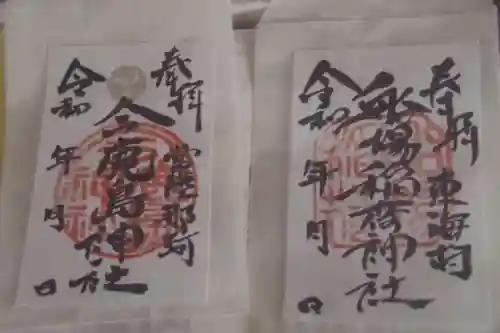 奉拝 東海村
舩場稲荷神社
令和 年 月 日
奉拝 常陸那珂
鹿島神社
令和 年 月 日